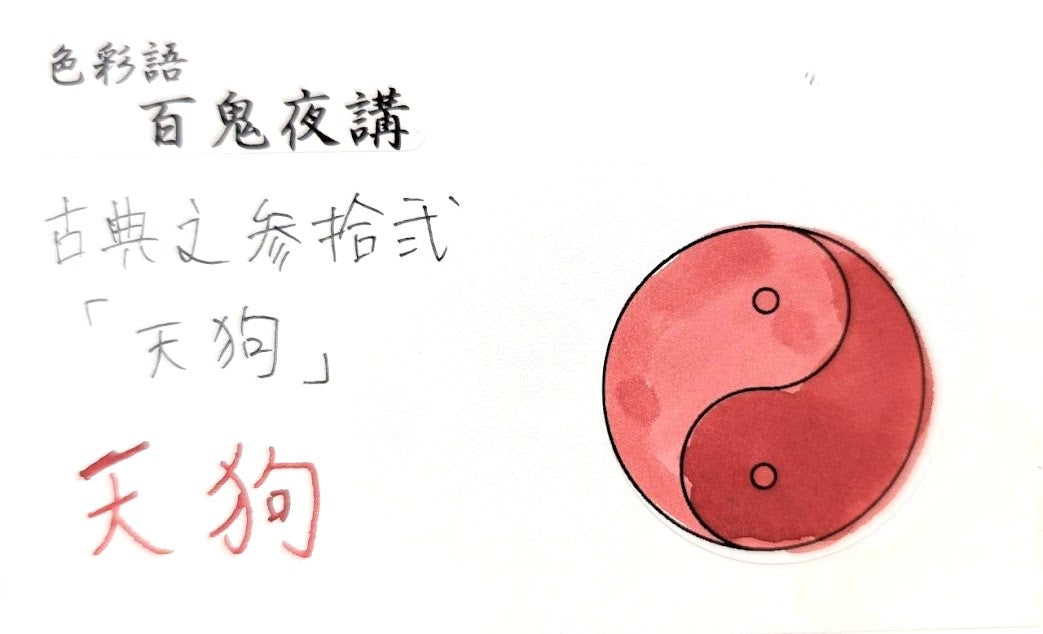 色彩語
百鬼夜講
古典之参拾弐
「天狗」
天狗